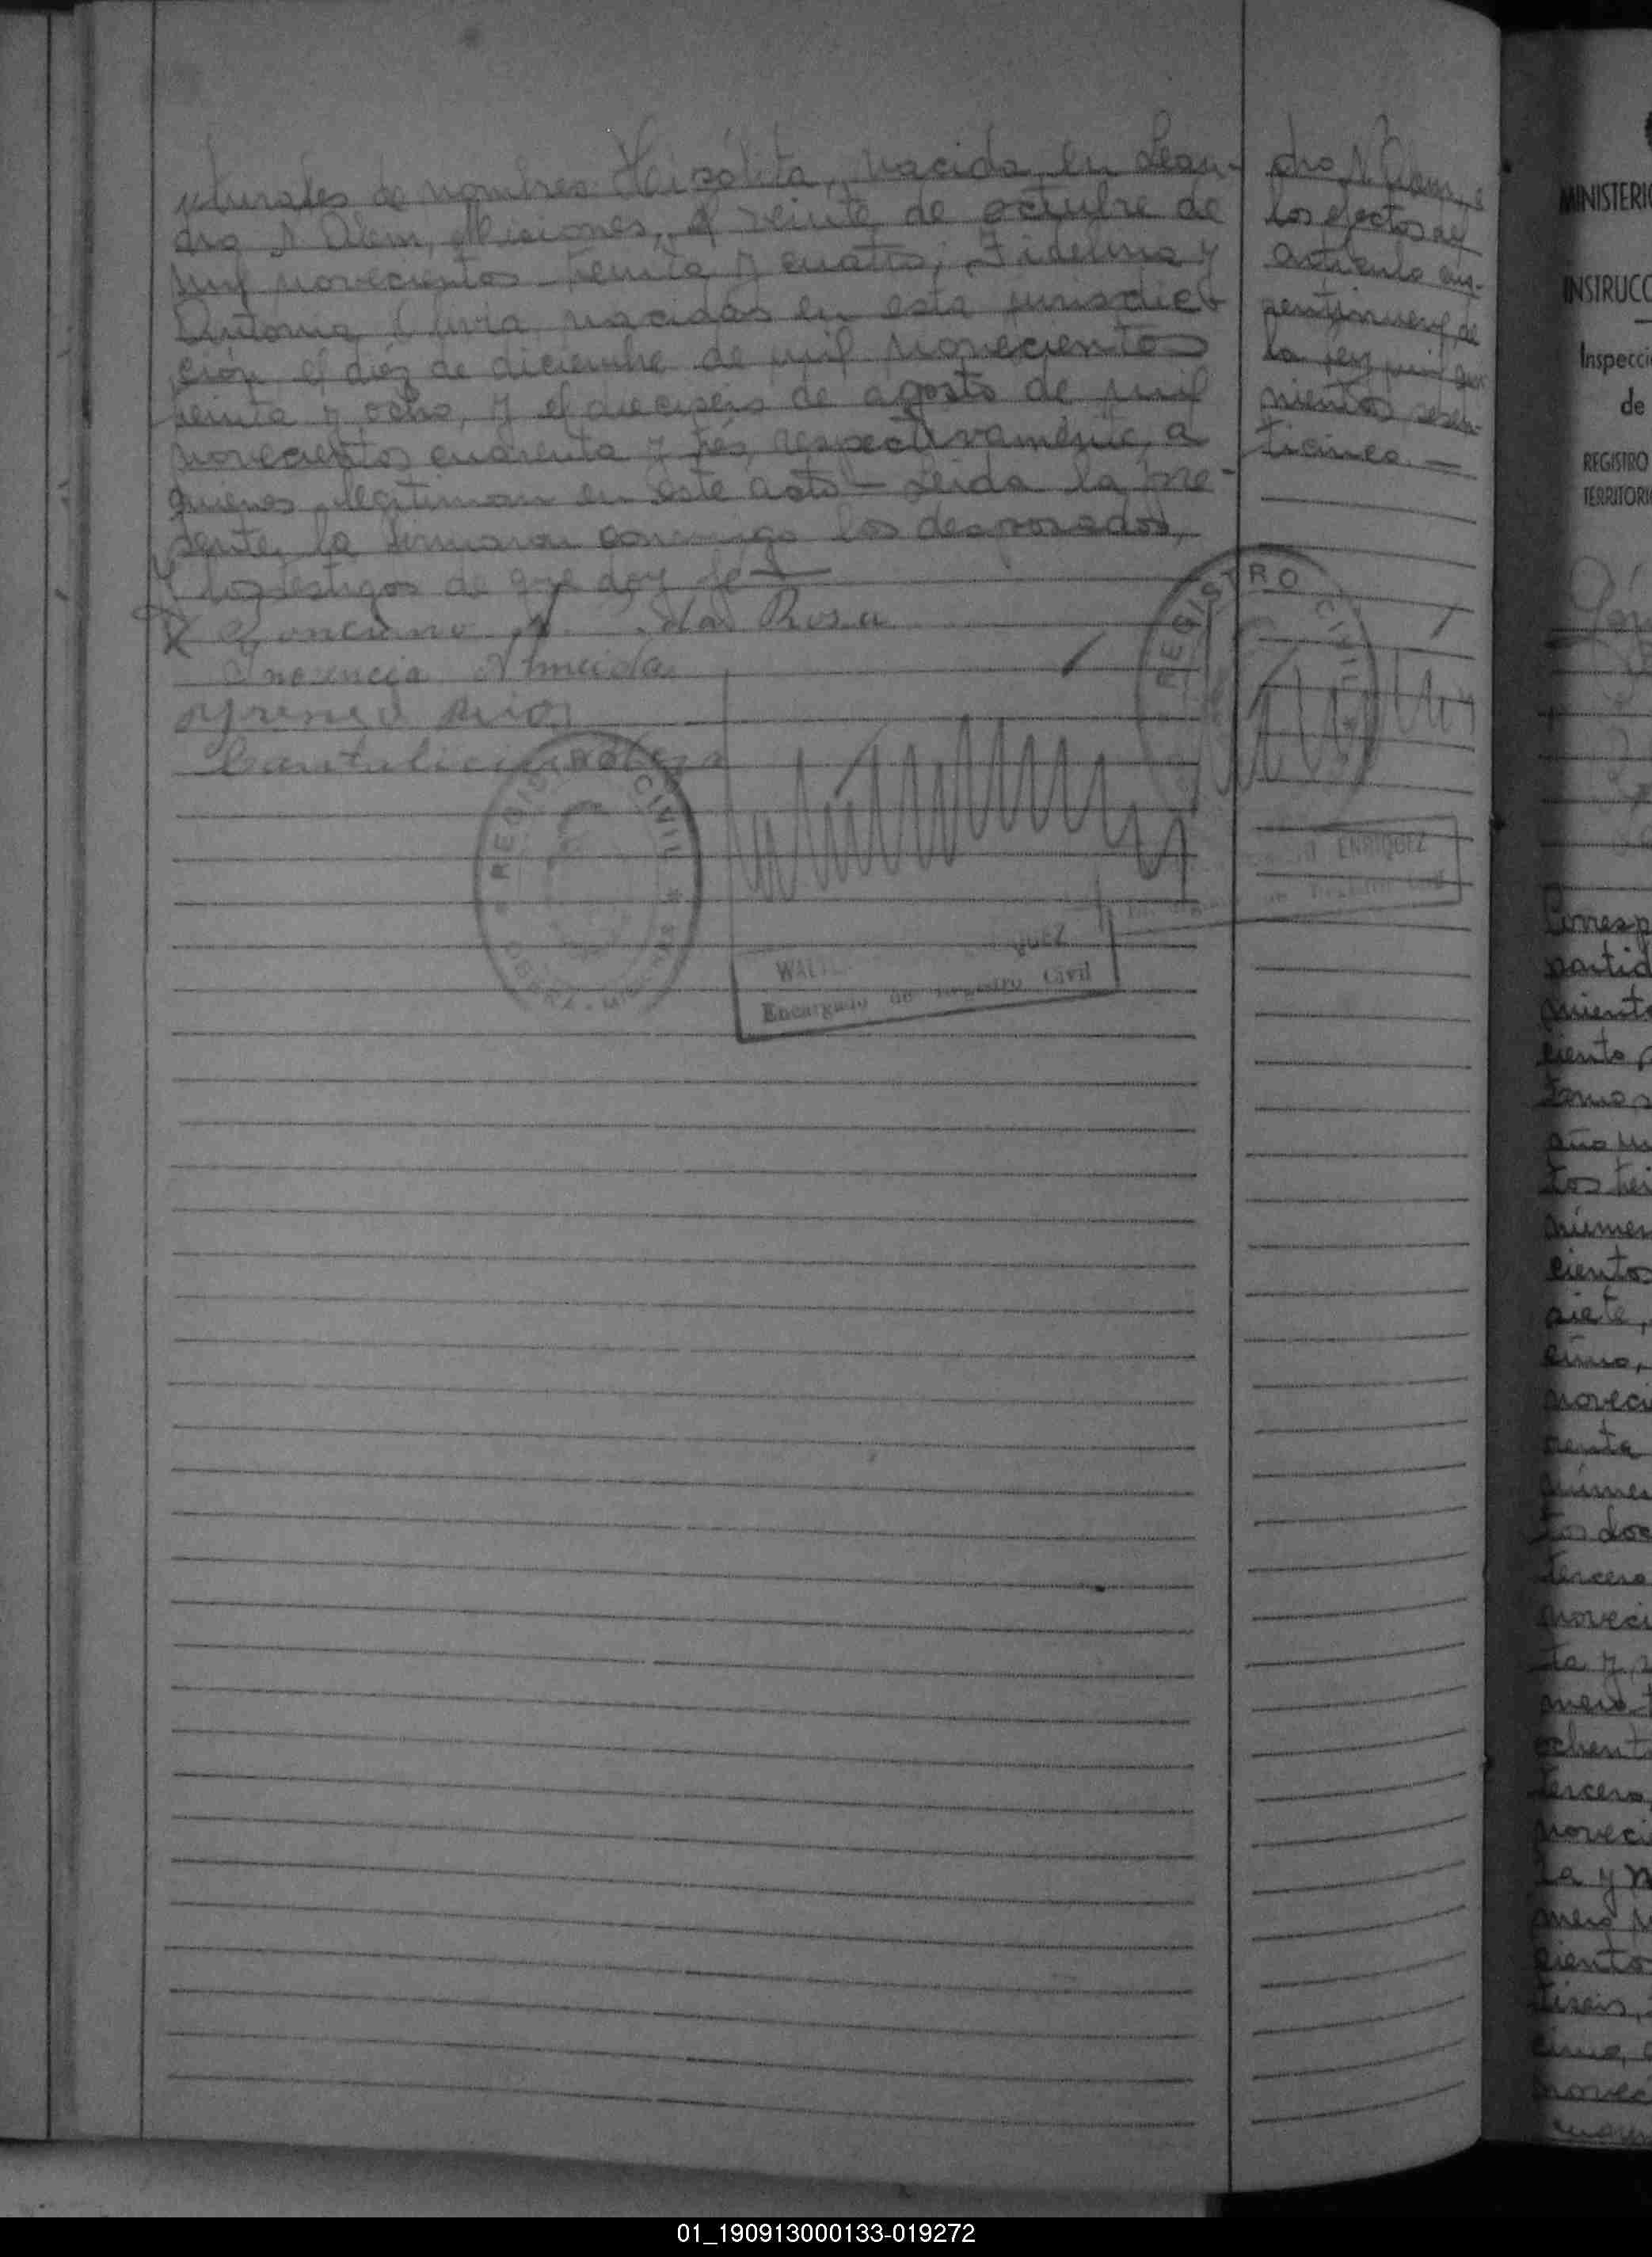 naturales de nombres Hipólita, nacida en Lean-
dro N Alem, Misiones, el veinte de octubre de
mil novecientos treinta y cuatro; Fidelina y
Antonia nacidas en esta jurisdic-
ción el diez de diciembre de mil novecientos
treinta y ocho, y el dieciseis de agosto de mil
novecientos cuarenta y tres, respectivamente, a
quienes legitiman en este acto - Leida la pre-
sente, la firmaron conmigo los desposados,
y los testigos de que doy fe
Ponciano da Rosa
Inocencia Almeida
Rios
Cantalicio
dro N. Alem, a
los efectos del
articulo cin-
cuentinueve de
la ley mil qui-
nientos sesen-
ticinco. —
REGISTRO CIVIL
REGISTRO CIVIL
OBERA - MISIONES
ENRIQUEZ
WALT QUEZ
Encargado de Registro Civil
MINISTERI
INSTRUCC
Inspecci
de
REGISTRO
TERRITORI
Corresp
partid
miento
ciento
tomo
año
tos trei
número
cientos
siete,
cimo,
noveci
renta
númer
tos doc
tercero
noveci
ta y
mero t
ochent
tercero
noveci
ta y n
mero
cientos
tiseis,
cimo,
novec
cuaren
01_190913000133-019272